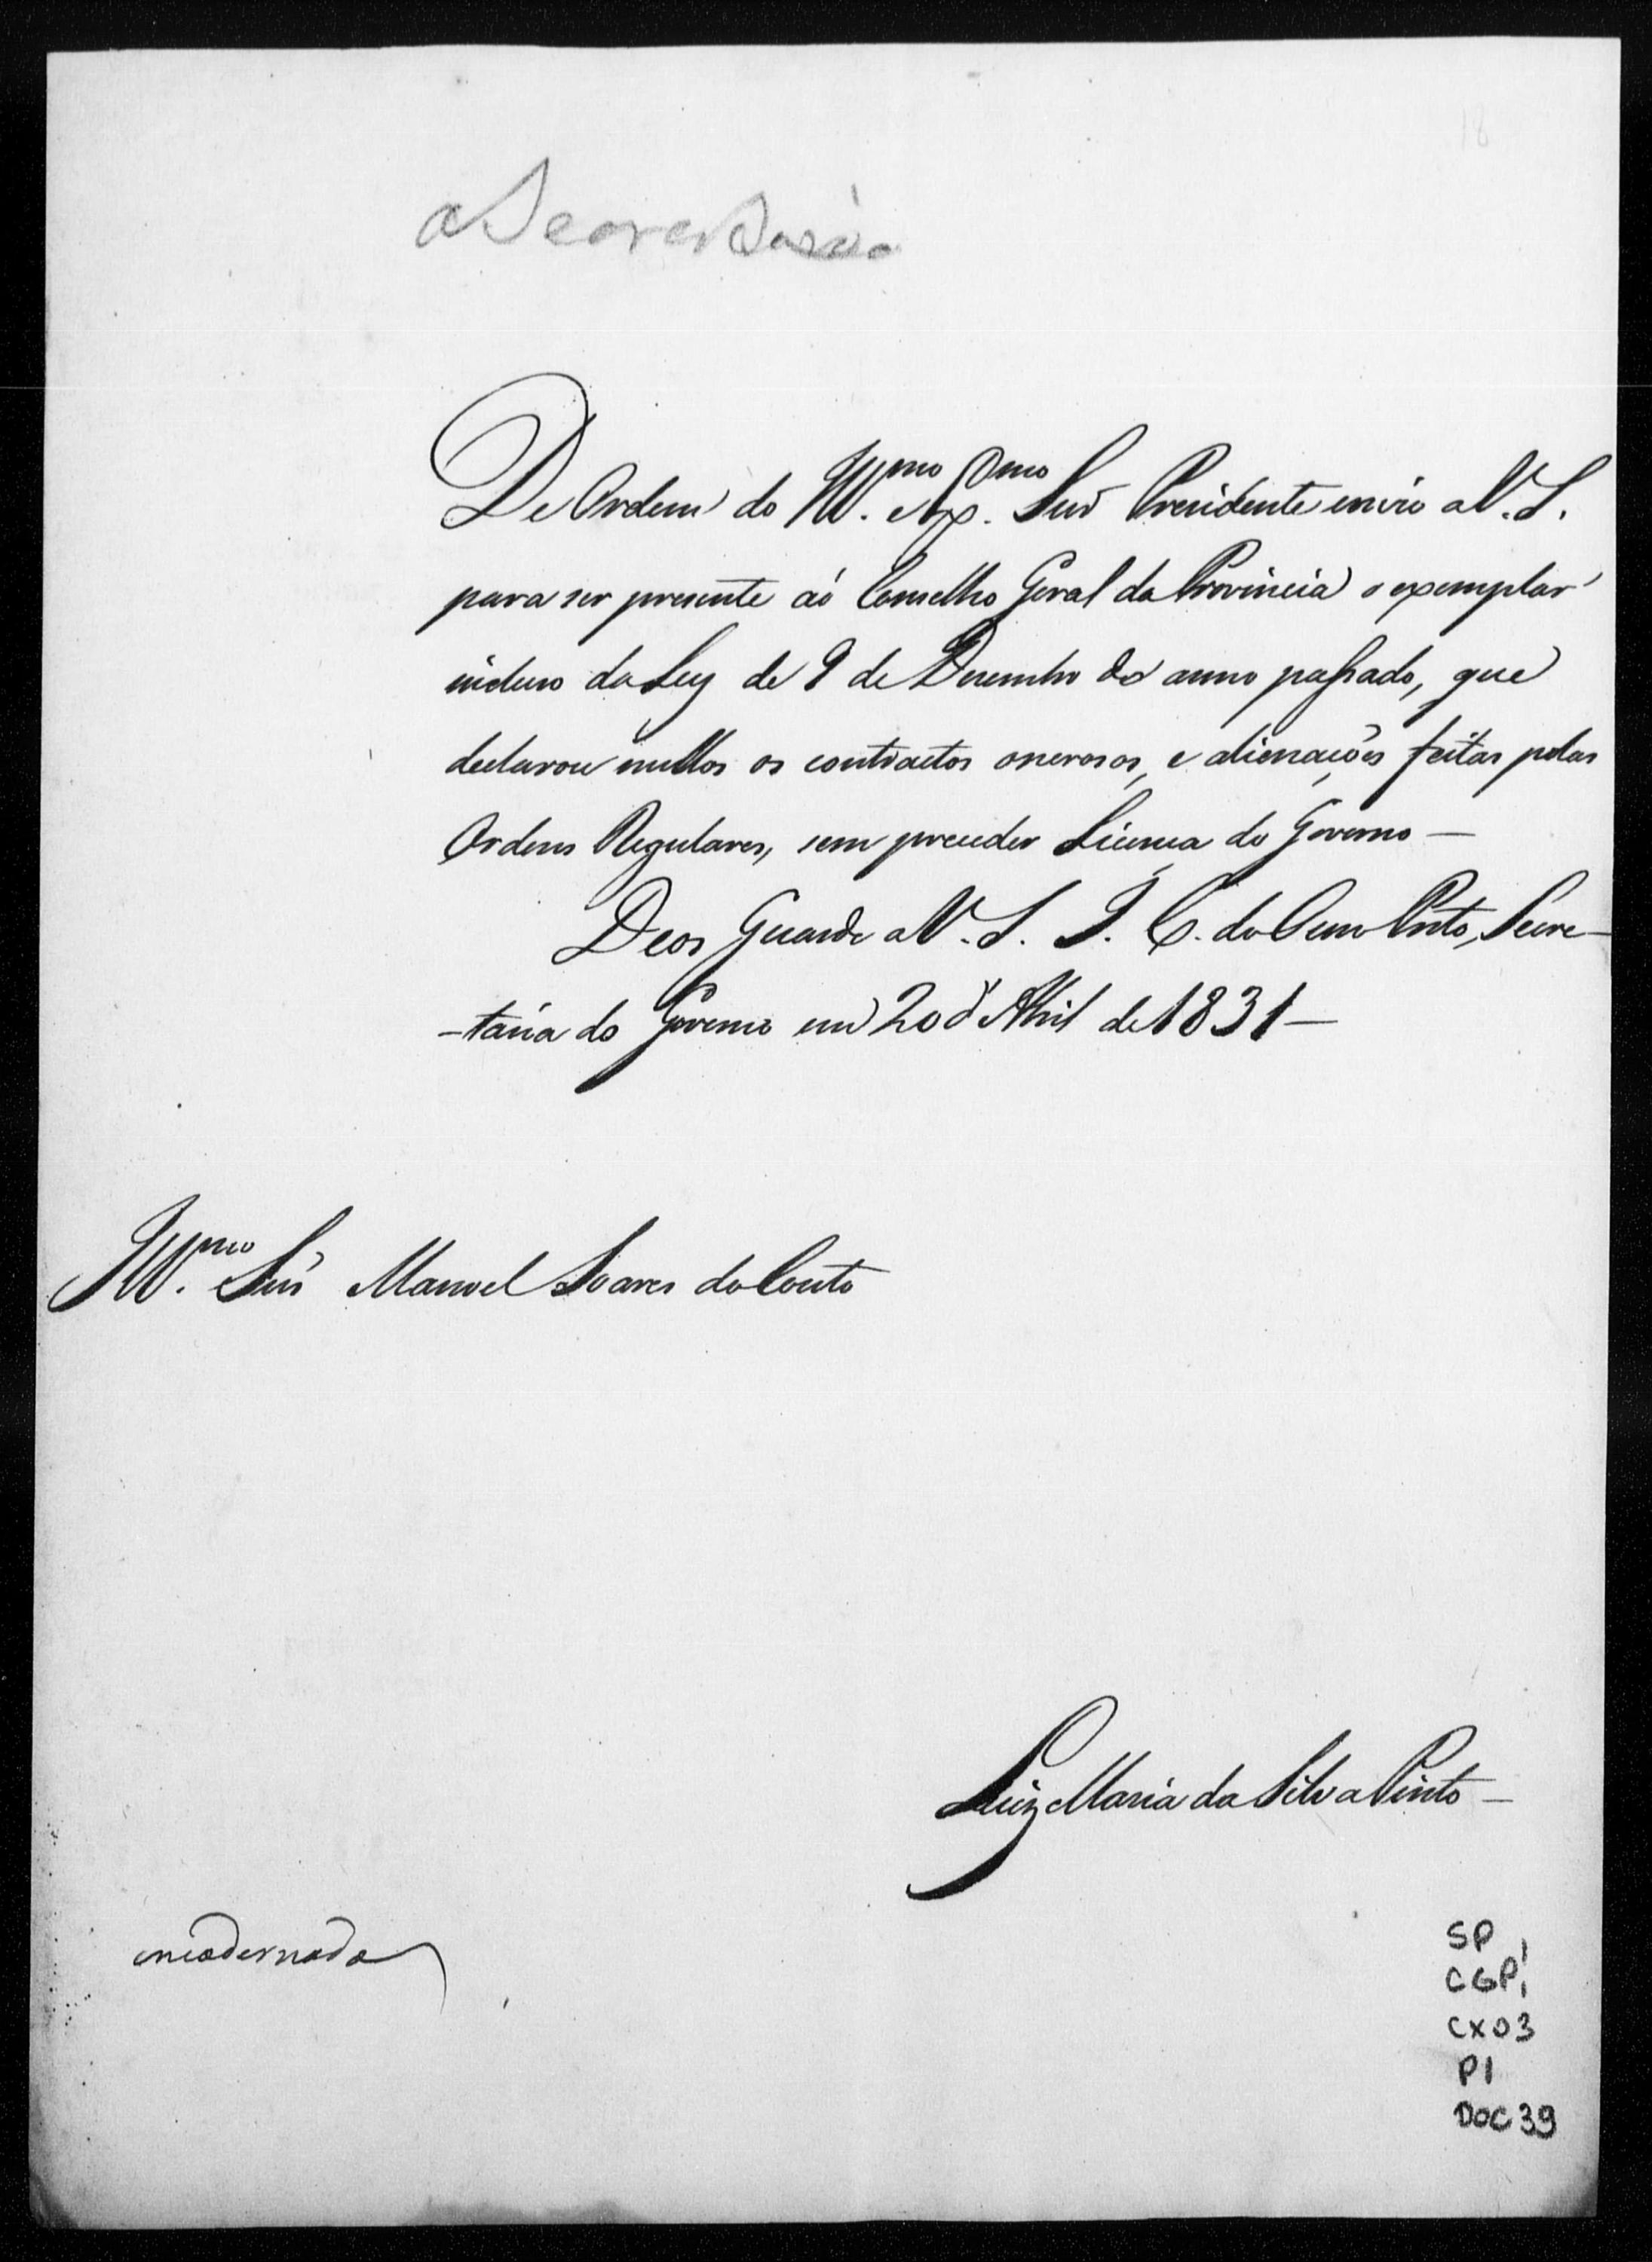 18
a Secretaria
De Ordem do Ill.mo e Ex.mo Snr Presidente envio a V. S.
para ser presente ao Conselho Geral da Provincia o exemplar
incluso da Ley de 9 de Dezembro do anno passado, que
declarou nullos os contractos onerosos, e alienações feitas pelas
Ordens Regulares, sem preceder Licença do Governo —
Deos Guarde a V. S. I. C. do Ouro Preto, Secre-
-taria do Governo em 20 d' Abril de 1831 —
Ill.mo Snr Manoel Soares do Couto
Luiz Maria da Silva Pinto —
encadernado
SP
CGP1
CX03
P1
DOC 39